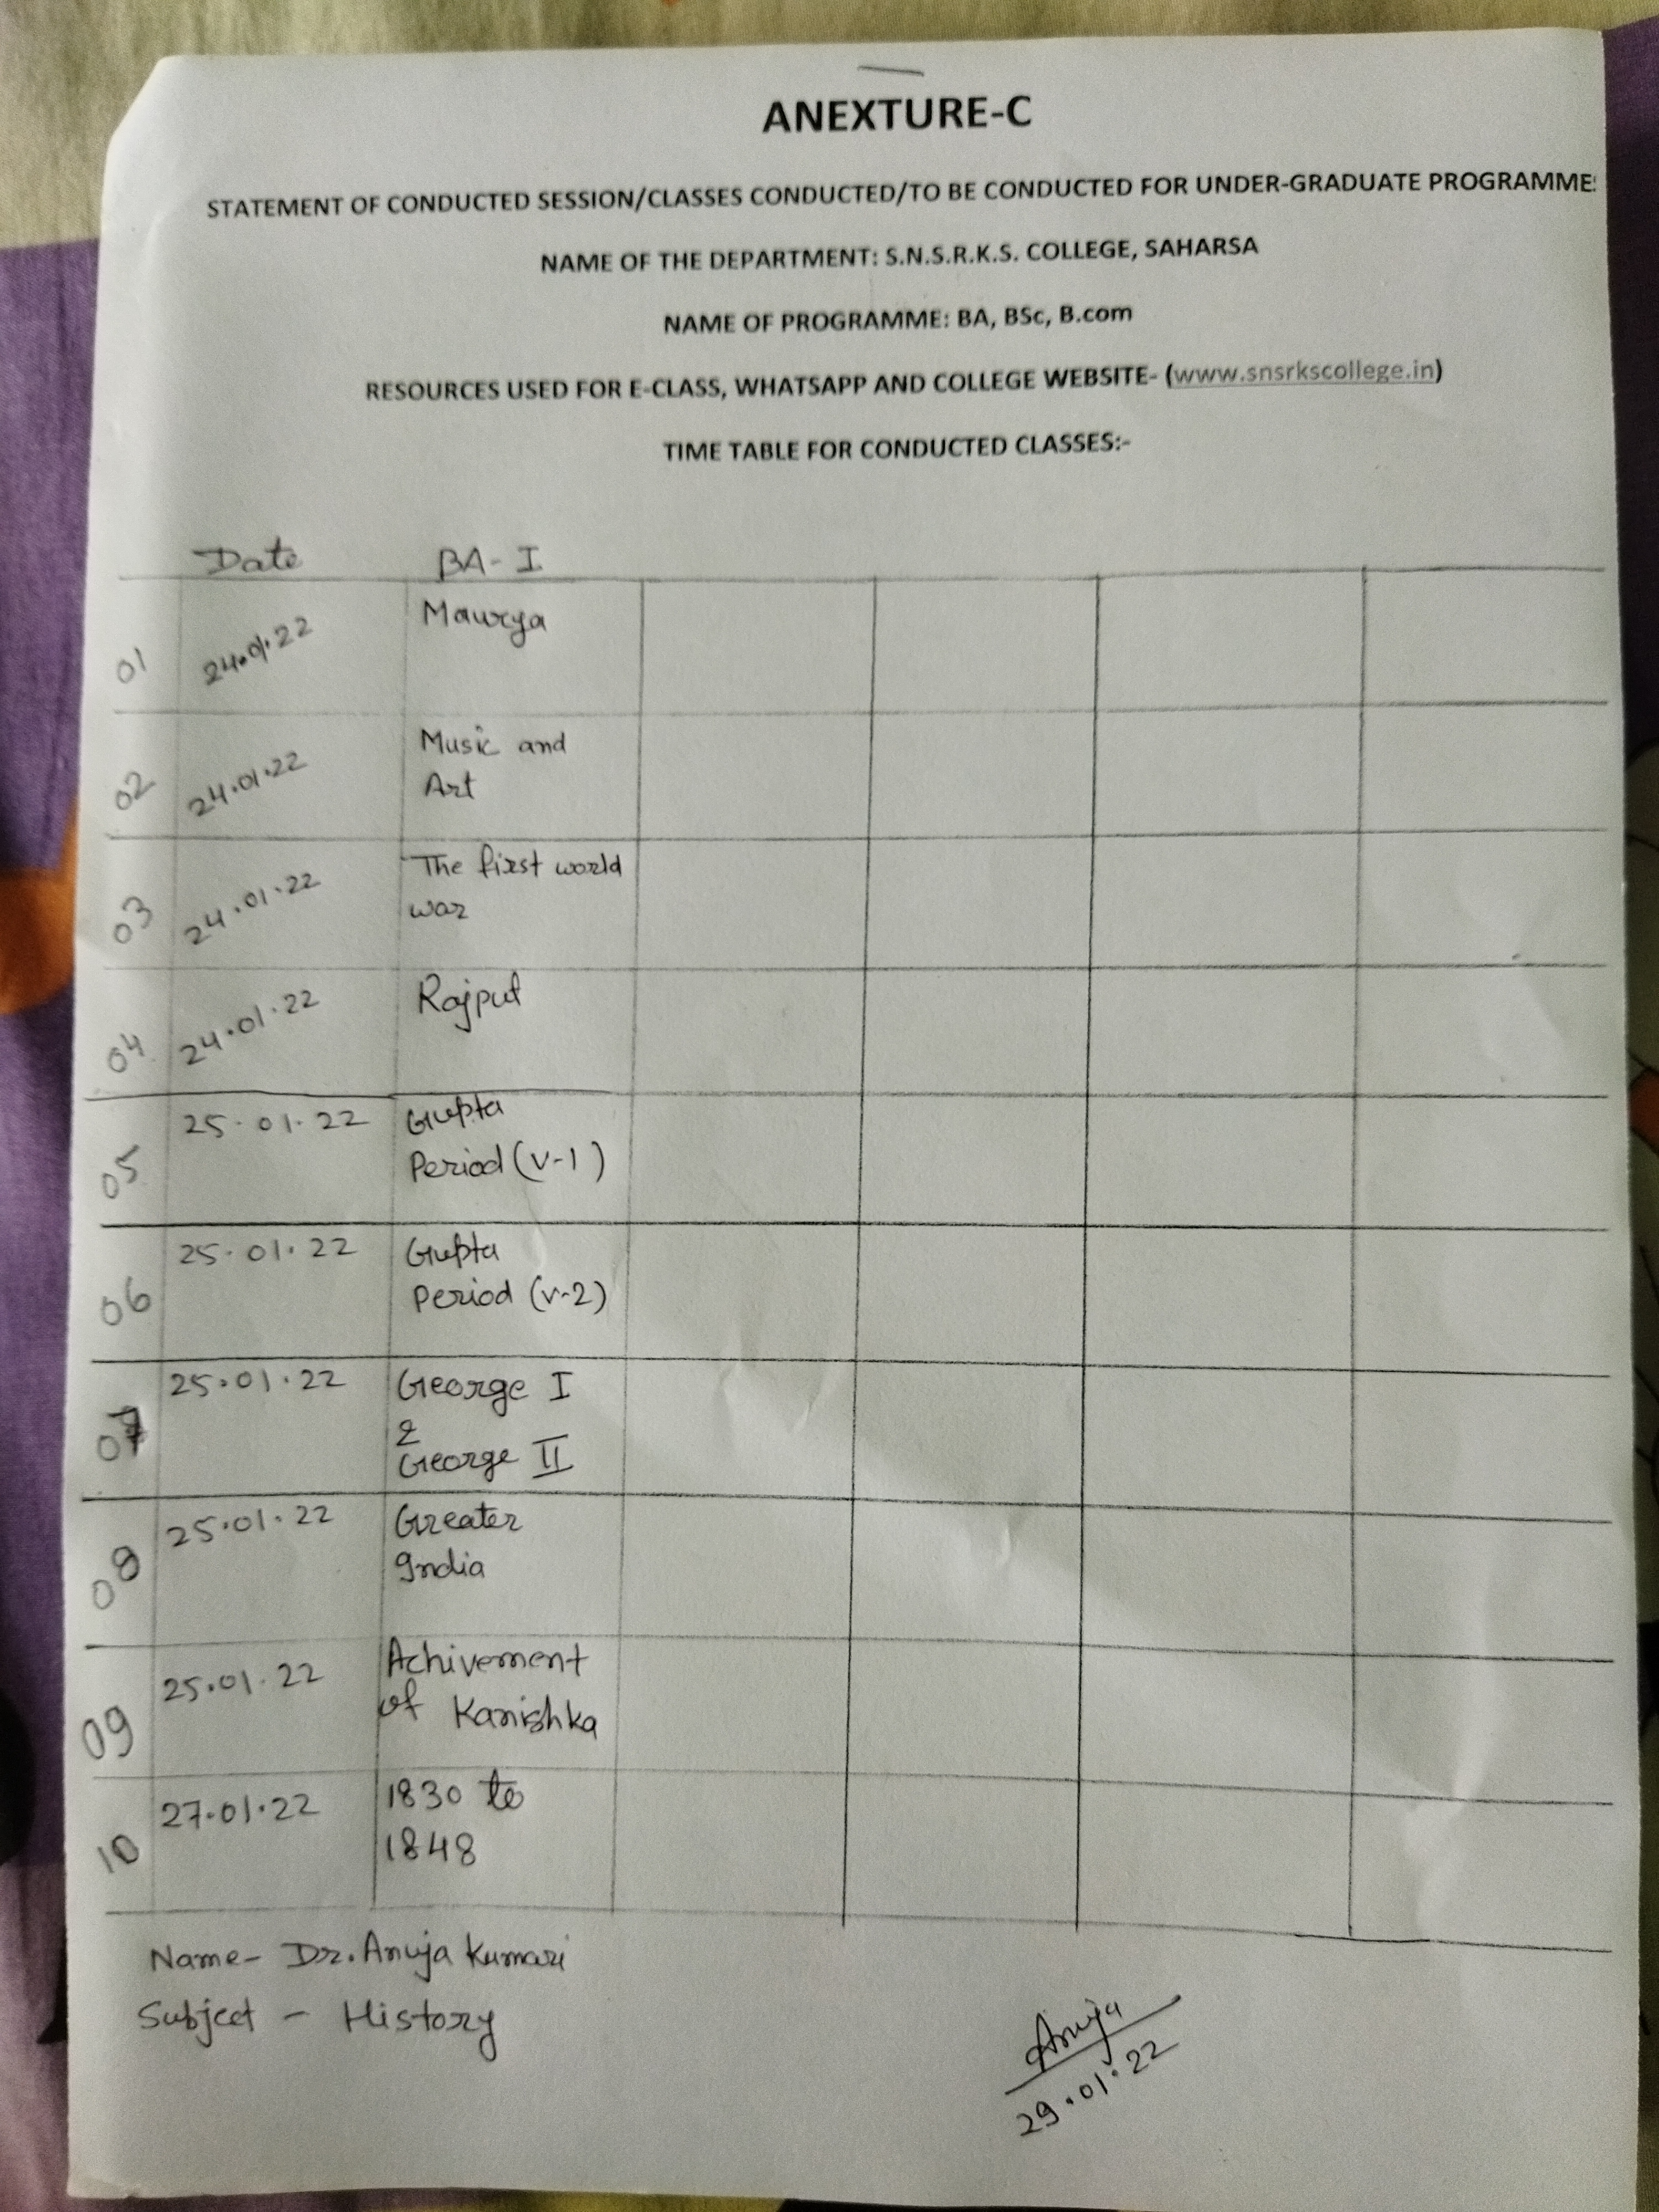 ANEXTURE-C
STATEMENT OF CONDUCTED SESSION/CLASSES CONDUCTED/TO BE CONDUCTED FOR UNDER-GRADUATE PROGRAMME:
NAME OF THE DEPARTMENT: S.N.S.R.K.S. COLLEGE, SAHARSA
NAME OF PROGRAMME: BA, BSc, B.com
RESOURCES USED FOR E-CLASS, WHATSAPP AND COLLEGE WEBSITE- (www.snsrkscollege.in)
TIME TABLE FOR CONDUCTED CLASSES:-
Date BA- I
01 24.01.22 Maurya
02 24.01.22 Music and
Art
03 24.01.22 The first world
war
04 24.01.22 Rajput
05 25.01.22 Gupta
Period (v-1)
06 25.01.22 Gupta
Period (v-2)
07 25.01.22 George I
&
George II
08 25.01.22 Greater
India
09 25.01.22 Achivement
of Kanishka
10 27.01.22 1830 to
1848
Name- Dr. Anuja Kumari
Subject - History
Anuja
29.01.22